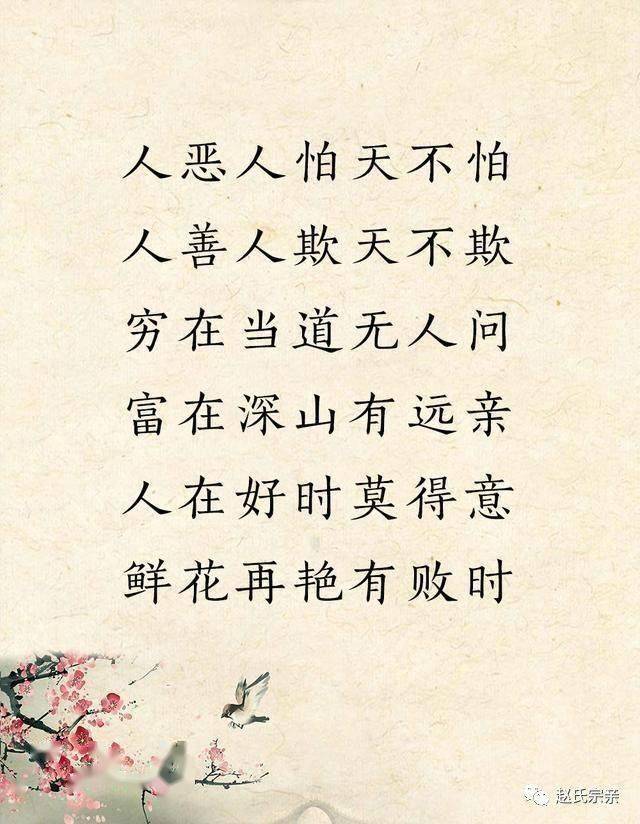 人恶人怕天不怕
人善人欺天不欺
穷在当道无人问
富在深山有远亲
人在好时莫得意
鲜花再艳有败时
赵氏宗亲